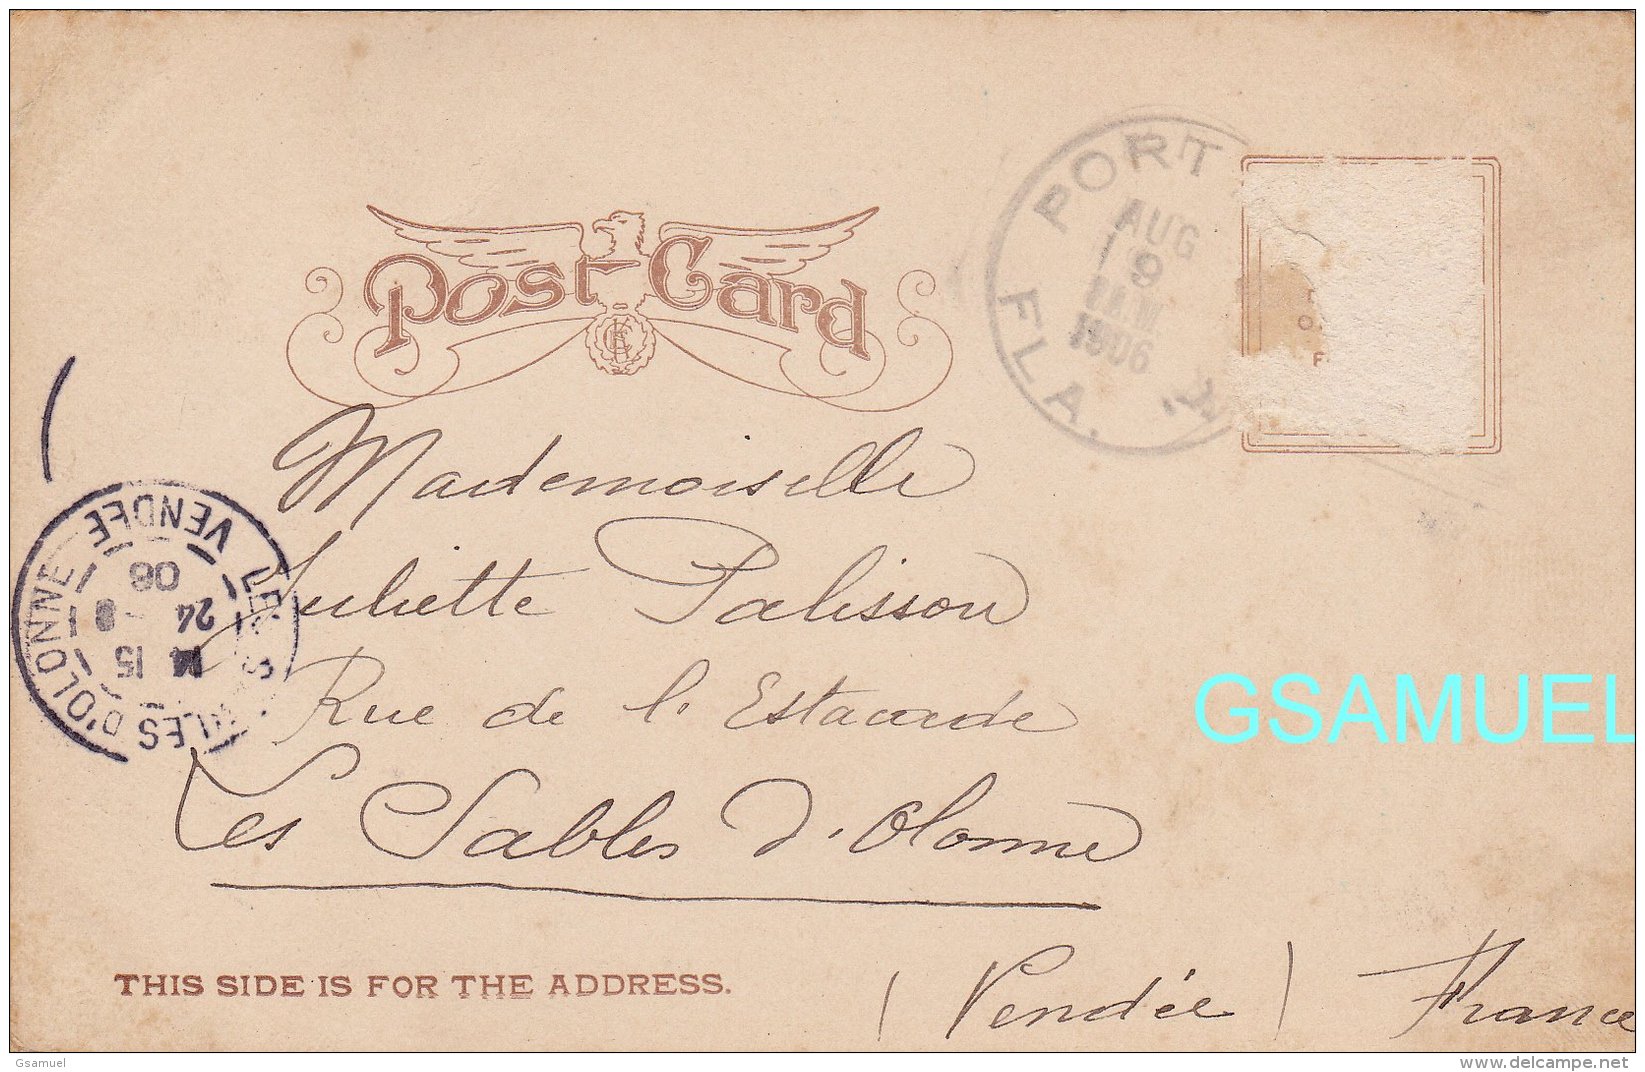 PORT
FLA.
AUG
9
1906
Post Card
VENDÉE
LES SABLES D'OLONNE
14 15
24 8
06
Mademoiselle
Juliette Palisson
Rue de l'Estacade
Les Sables d'Olonne
(Vendée) France
THIS SIDE IS FOR THE ADDRESS.
GSAMUEL
Gsamuel
www.delcampe.net